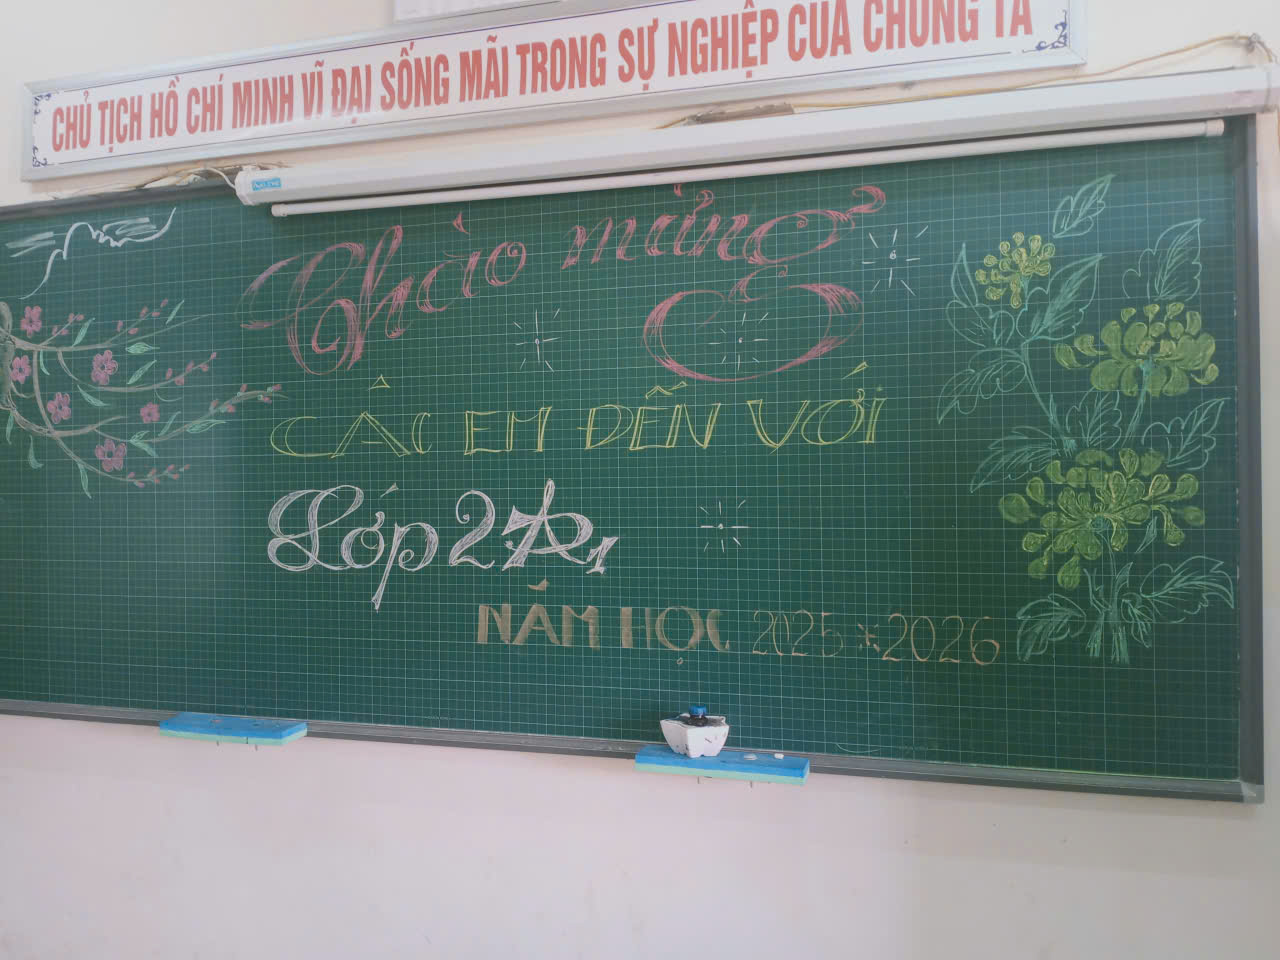 CHỦ TỊCH HỒ CHÍ MINH VĨ ĐẠI SỐNG MÃI TRONG SỰ NGHIỆP CỦA CHÚNG TA
Chào mừng
CÁC EM ĐẾN VỚI
Lớp 2A1
NĂM HỌC 2025 * 2026